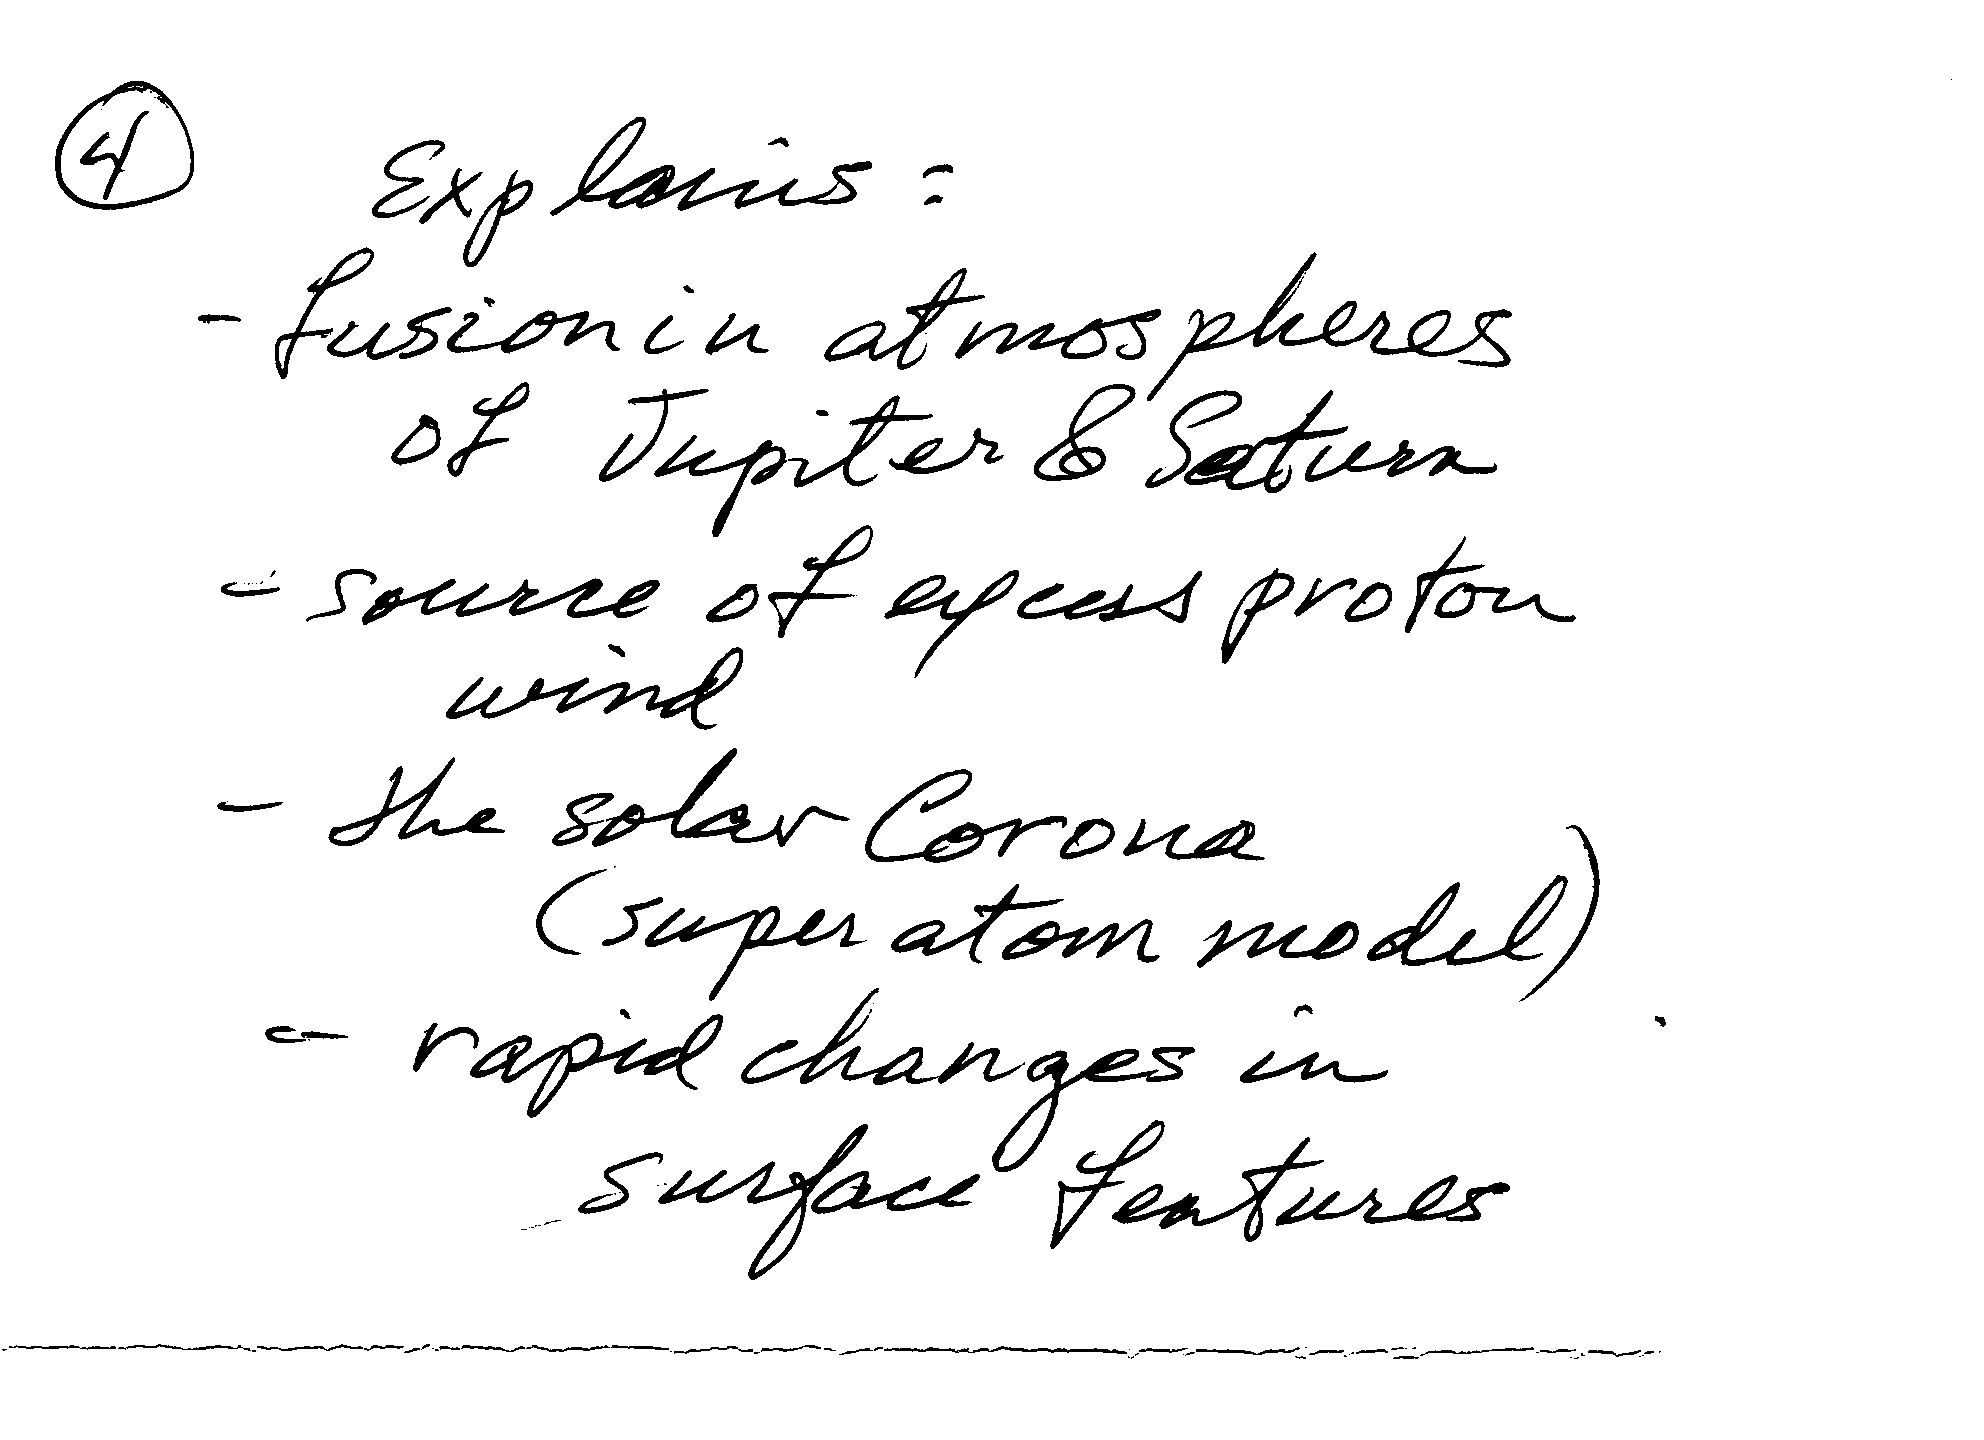 4 Explains:
- fusion in atmospheres
of Jupiter & Saturn
- source of excess proton
wind
- the solar Corona
(super atom model)
- rapid changes in
surface features